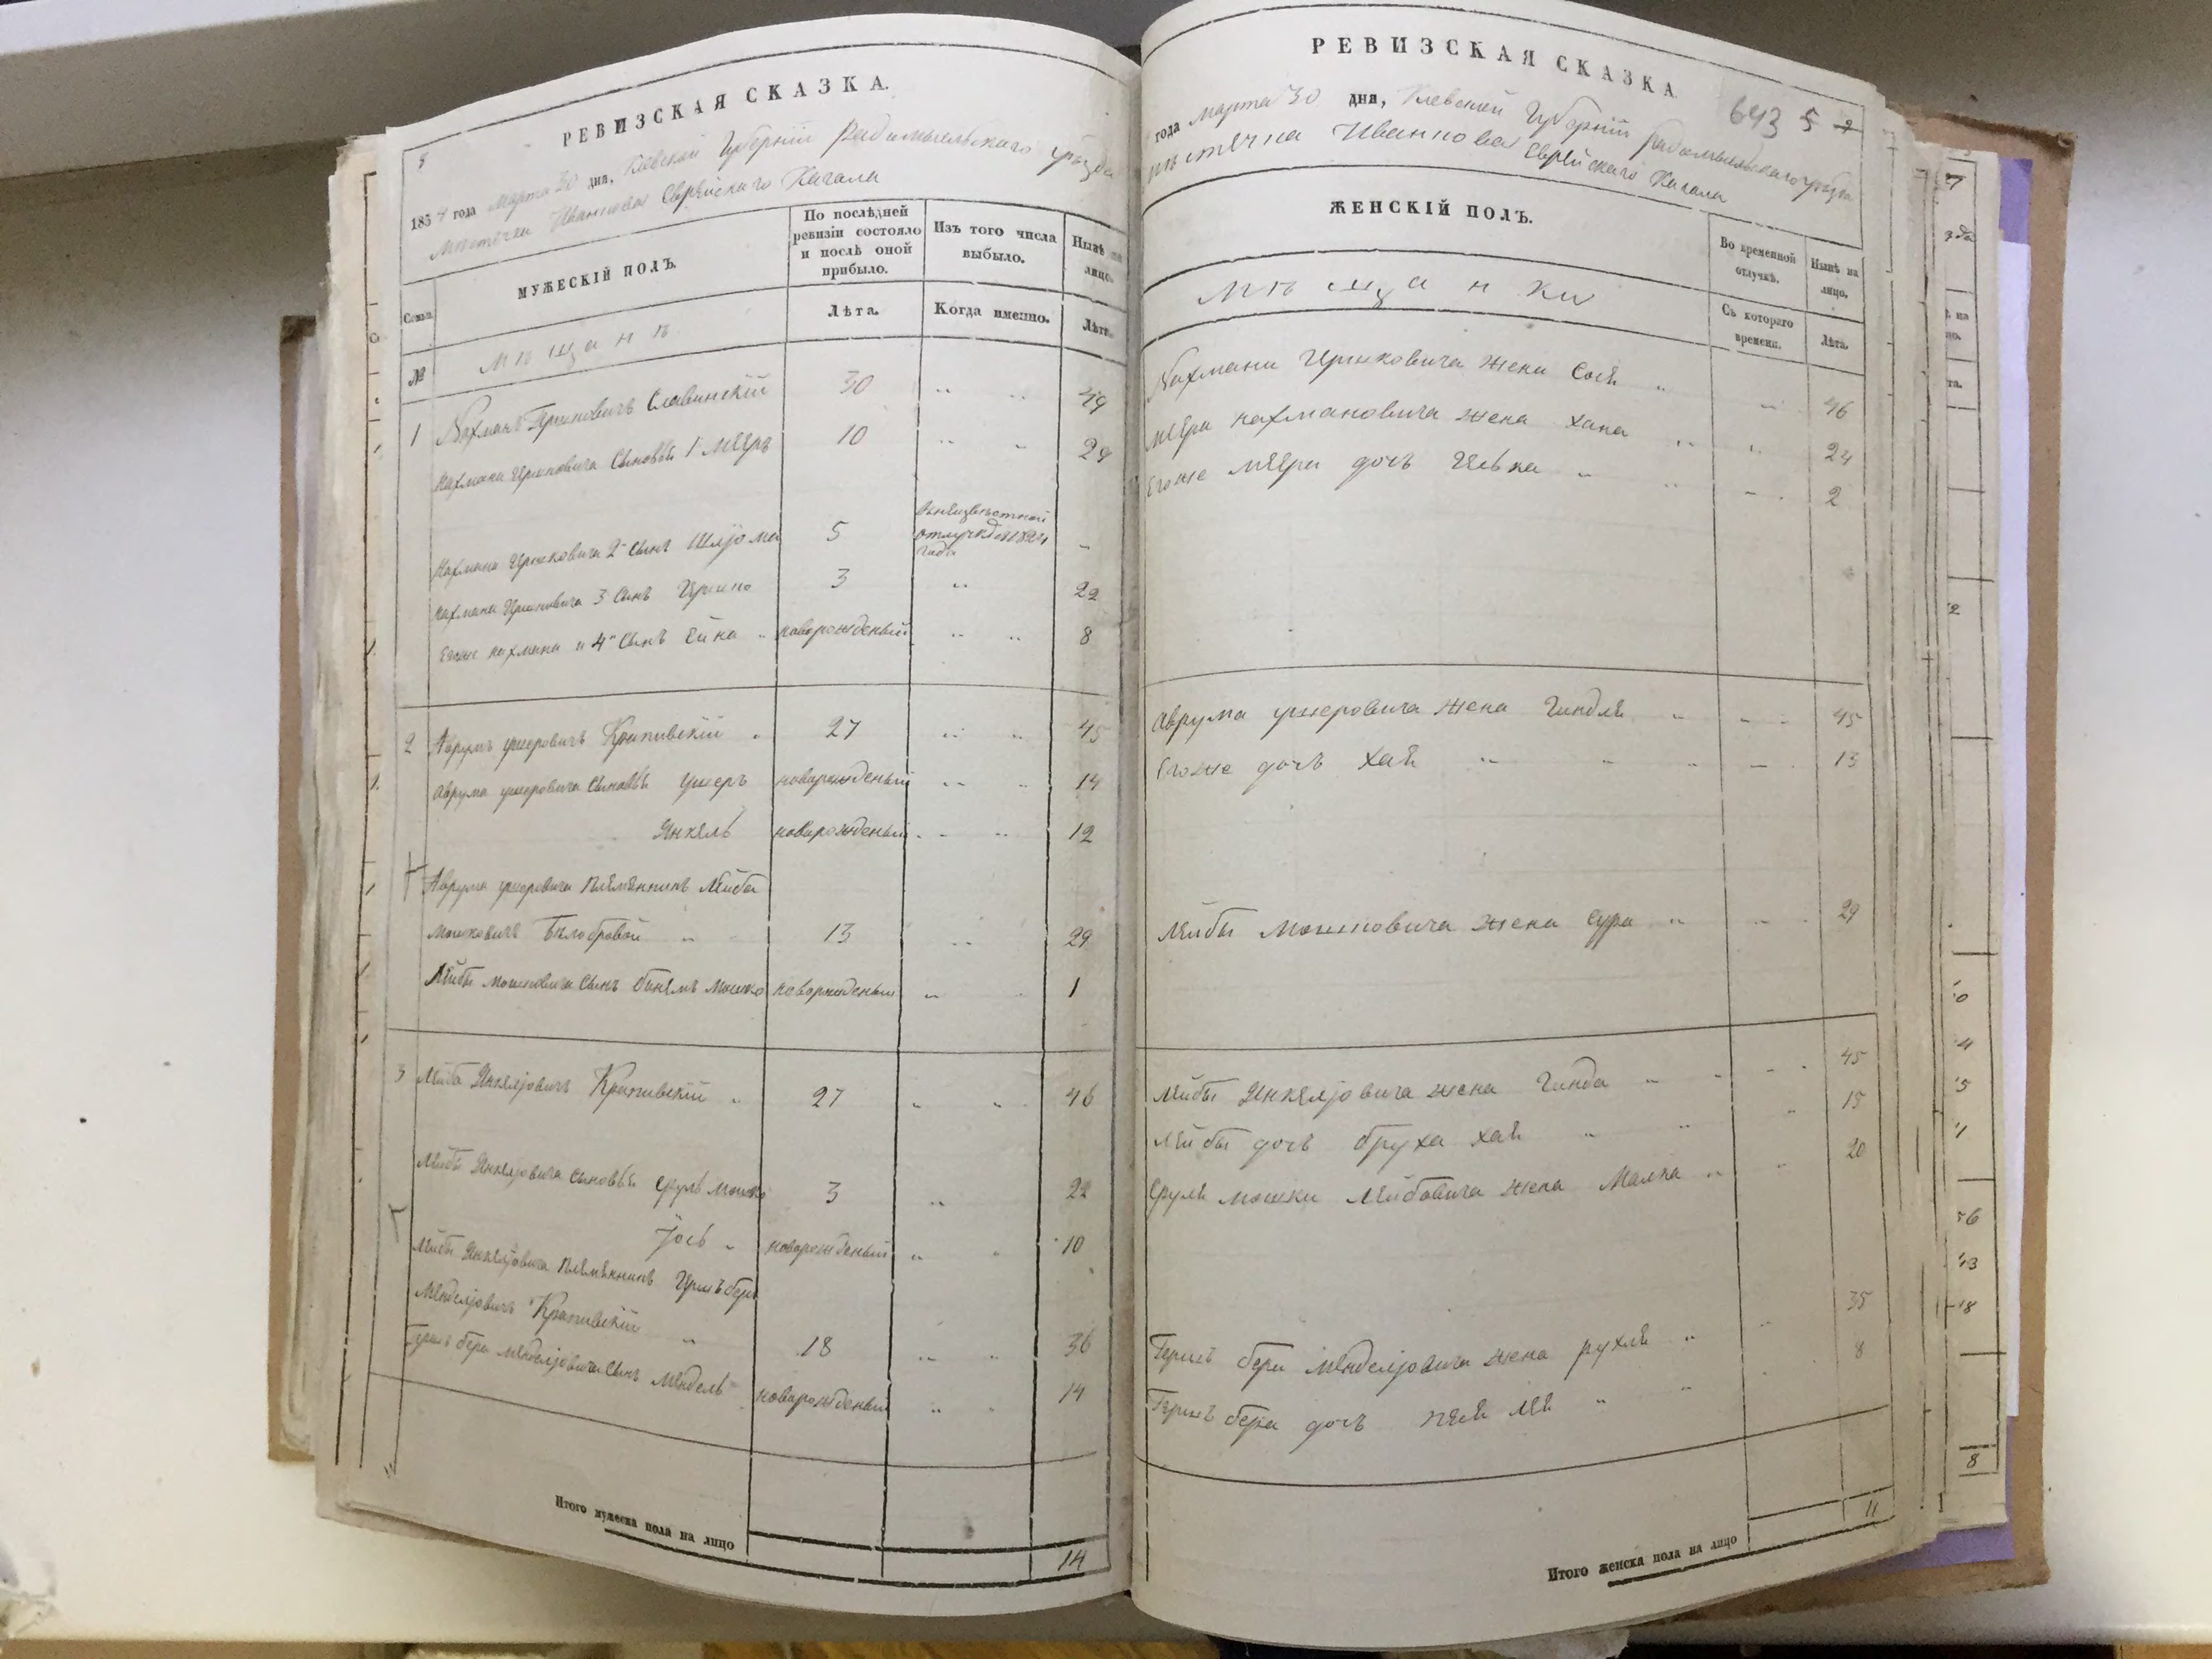 8
РЕВИЗСКАЯ СКАЗКА.
1854 года Марта 30 дня, Киевской Губернии Радомысльского уезда
местечка Иванкова Еврейскаго Кагала
Семьи.
МУЖЕСКІЙ ПОЛЪ.
По послѣдней ревизіи состояло и послѣ оной прибыло.
Изъ того числа выбыло.
Нынѣ на лицо.
№
мѣщанѣ
Лѣта.
Когда именно.
Лѣта.
1 Нахманъ Гершковичъ Славинскій 30 49
Нахмана Гершковича Сыновья 1 Мееръ 10 29
Нахмана Гершковича 2й Сынъ Шлјома 5 отлучкѣ 1824 года -
Нахмана Гершковича 3 Сынъ Гершко 3 22
Егоже нахмана и 4й Сынъ Ейна новорожденый 8
2 Аврумъ ушеровичъ Крапивскій 27 45
Аврума ушеровича Сыновья Ушеръ новорожденый 14
Янкель новорожденый 12
Аврума ушеровича племянникъ Лейба
Мошковичъ Бѣлобровой 13 29
Лейбы мошковича Сынъ Бинемъ Мошко новорожденый 1
3 Лейба Янкелјовичъ Крапивскій 27 46
Лейбы Янкелјовича Сыновья Сруль Мошко 3 22
Јось новорожденый 10
Лейбы Янкелјовича племянникъ Гершъ бера
Менделјовичъ Крапивскій 18 36
Гершъ бера менделјовича Сынъ Мендель новорожденый 14
Итого мужеска пола на лицо 14
РЕВИЗСКАЯ СКАЗКА
643 5
года марта 30 дня, Киевской Губерніи Радомысльскаго уезда
местечка Иванкова Еврейскаго Кагала
ЖЕНСКІЙ ПОЛЪ.
Во временной отлучкѣ.
Нынѣ на лицо.
мѣщанки
Съ котораго времени.
Лѣта.
Нахмана Гершковича жена Сося 46
меера нахмановича жена хана 24
Егоже меера дочь Цевка 2
Аврума ушеровича жена Гиндля 45
Егоже дочь хая 13
Лейбы Мошковича жена Сура 29
Лейбы Янкелјовича жена Гинда 45
Лейбы дочь бруха хая 15
Сруля мошки Лейбовича жена Малка 20
Гершъ бера менделјовича жена рухля 35
Гершъ бера дочь песя лея 8
Итого женска пола на лицо 11